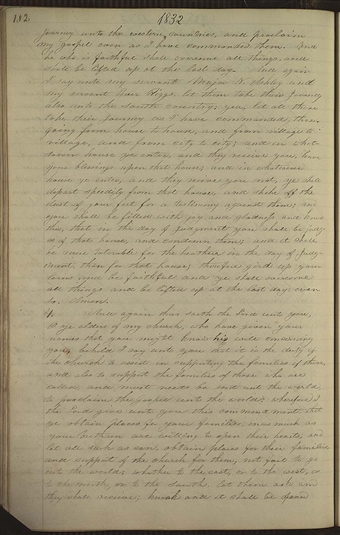 182 1832
journey unto the eastern countries, and proclaim
my gospel even as I have commanded them. And
he who is faithful shall overcome all things, and
shall be lifted up at the last day. And again
I say unto my servant Major N. Ashley and
my servant Burr Riggs. let them take their journey
also into the South country; yea let all those
take their journey as I have commanded them,
going from house to house, and from village to
village, and from city to city; and in what-
soever house ye enter, and they receive you, leave
your blessing upon that house; and in whatsoever
house ye enter, and they receive you not, ye shall
depart speedily from that house, and shake off the
dust of your feet for a testimony against them; and
you shall be filled with joy and gladness and know
this, that in the day of judgment you shall be judg-
es of that house, and condemn them; and it shall
be more tolerable for the heathen in the day of judg-
ment, than for that house; therefore gird up your
loins and be faithful and ye shall overcome
all things and be lifted up at the last day: even
so. Amen.
4. And again thus saith the Lord unto you,
O ye elders of my church, who have given your
names that you might know his will concerning
you; behold I say unto you that it is the duty of
the church to assist in supporting the families of those
and also to support the families of those who are
called and must needs be sent unto the world
to proclaim the gospel unto the world: wherefore I
the Lord give unto you this commandment, that
ye obtain places for your families, inasmuch as
your brethren are willing to open their hearts; and
let all such as can, obtain places for their families
and support of the church for them, not fail to go
into the world; whether to the east, or to the west, or
to the north, or to the south. let them ask and
they shall receive; knock and it shall be opened